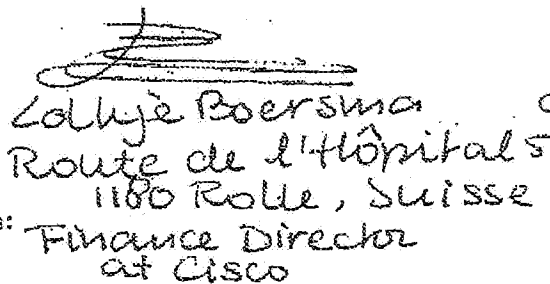 Boersma
Route de l'Hôpital 5
1180 Rolle, Suisse
Finance Director
at Cisco